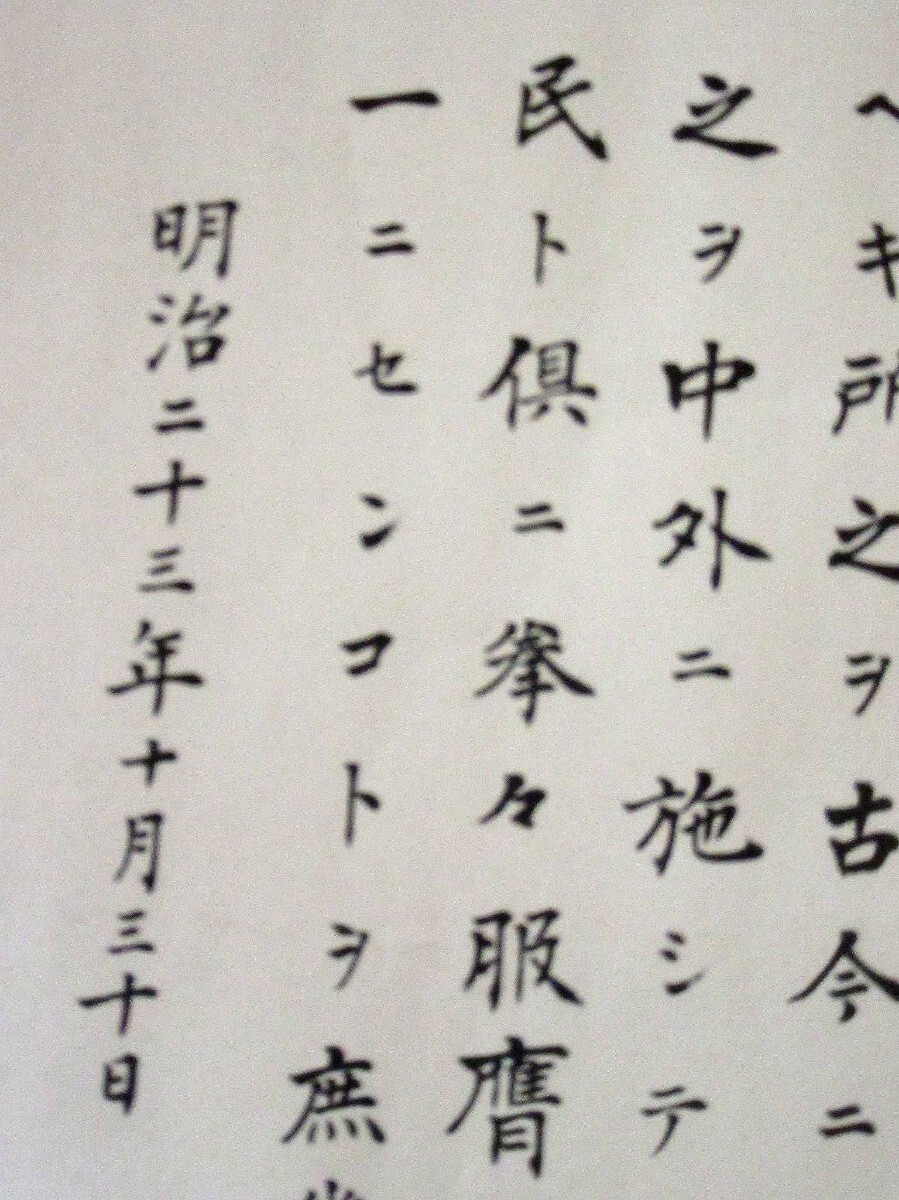 ヘキ所之ヲ古今ニ
之ヲ中外ニ施シテ
民ト倶ニ拳々服膺
一ニセンコトヲ庶
明治二十三年十月三十日